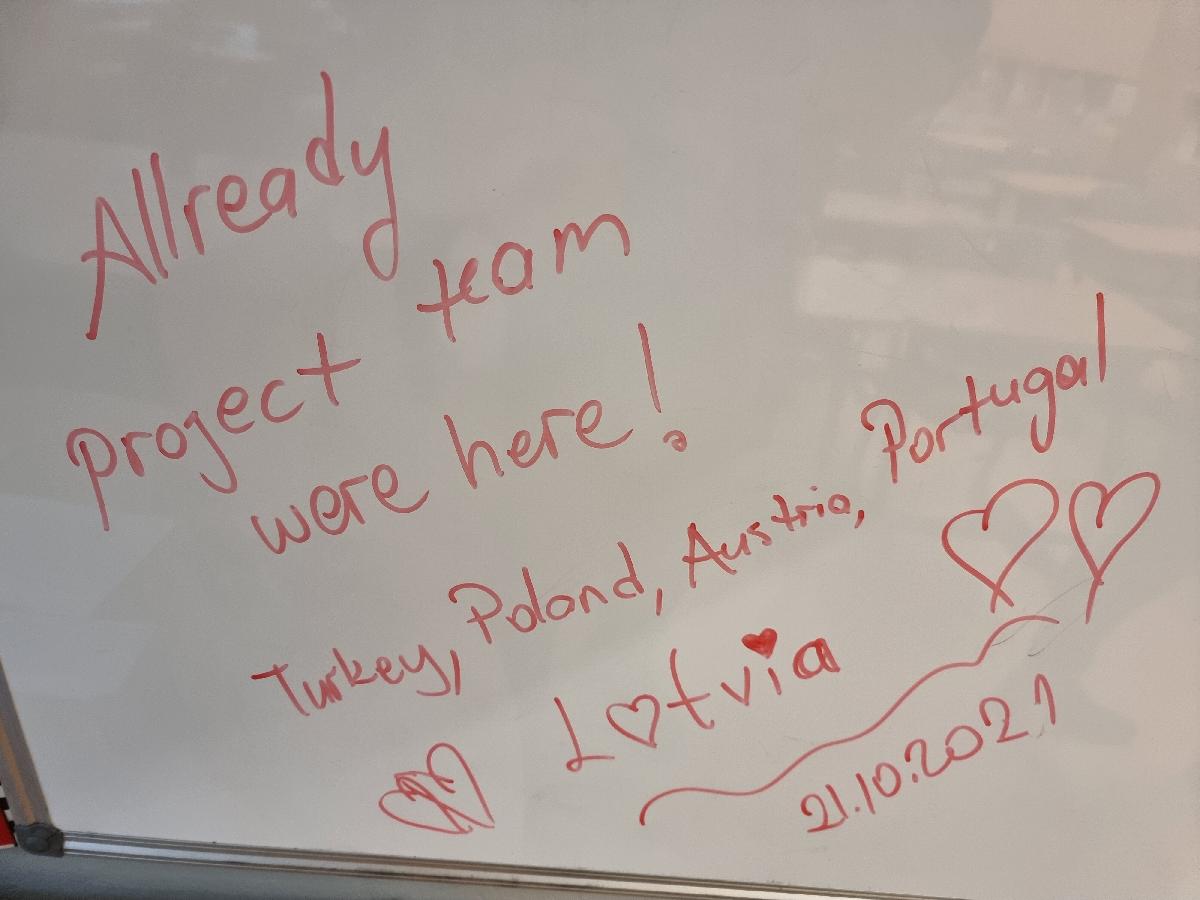 Allready
project team
were here!
Turkey, Poland, Austria, Portugal
Latvia
21.10.2021